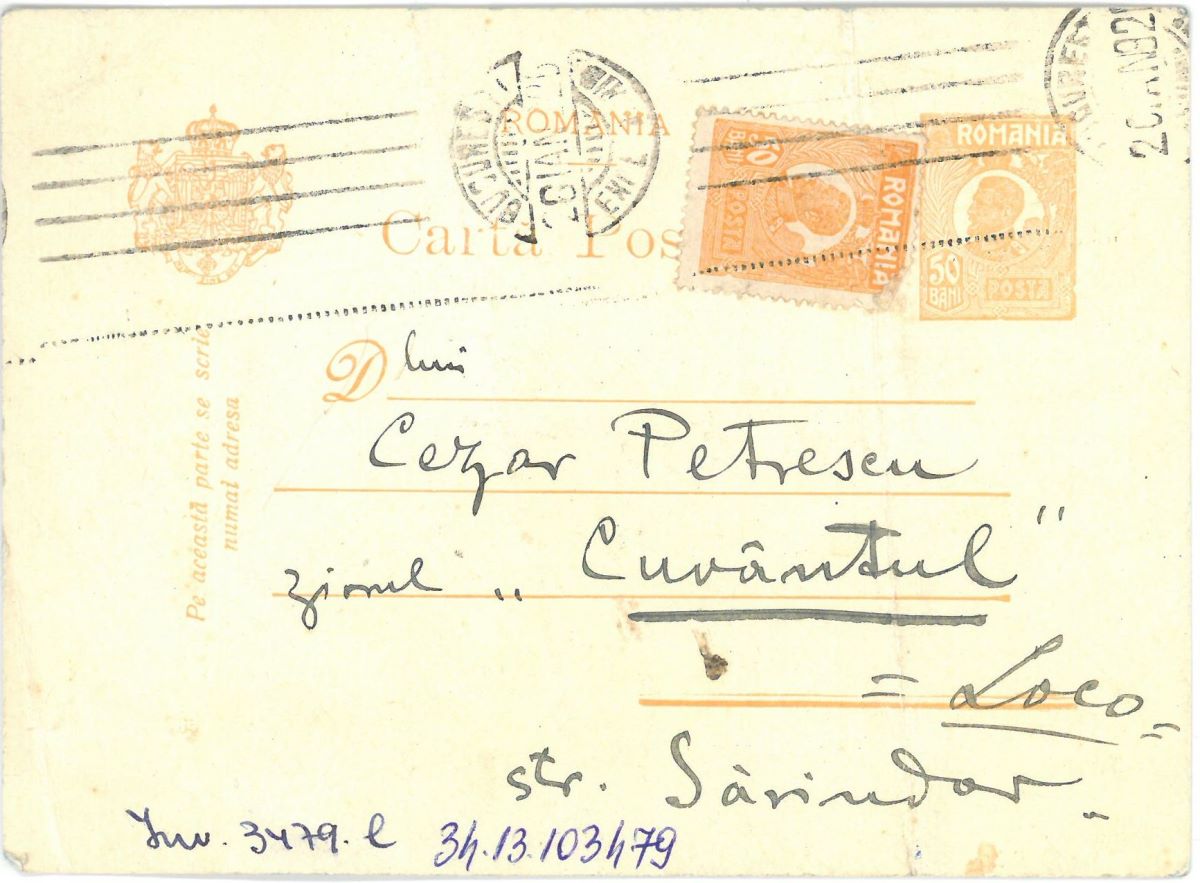 ROMANIA
Carta Pos
ROMANIA
50
BANI
POSTA
50
BANI
POSTA
ROMANIA
Pe această parte se scrie
numai adresa
D lui
Cezar Petrescu
ziarul „Cuvântul"
= Loco =
str. Sărindar
Inv. 3479. C 34.13.103479